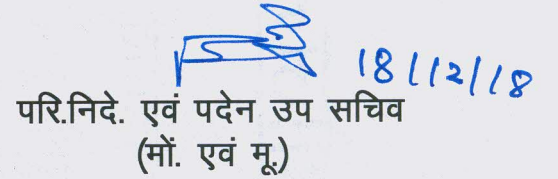 18/12/18
परि.निदे. एवं पदेन उप सचिव
(मों. एवं मू.)